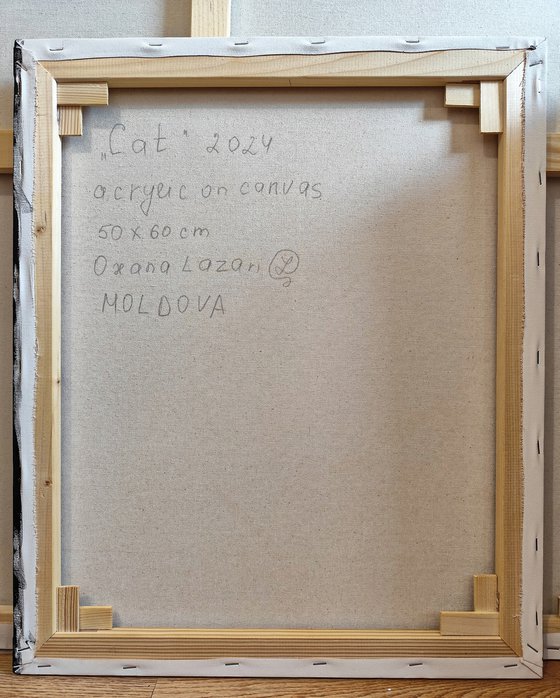 „Cat" 2024
acrylic on canvas
50x60 cm
Oxana Lazari L
MOLDOVA